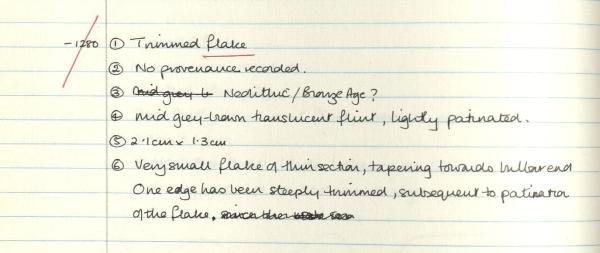 -1280 ① Trimmed flake
② No provenance recorded.
③ mid grey b Neolithic/Bronze Age?
④ mid grey-brown translucent flint, lightly patinated.
⑤ 2.1cm x 1.3cm
⑥ Very small flake of thin section, tapering towards bulbar end
One edge has been steeply trimmed, subsequent to patination
of the flake.